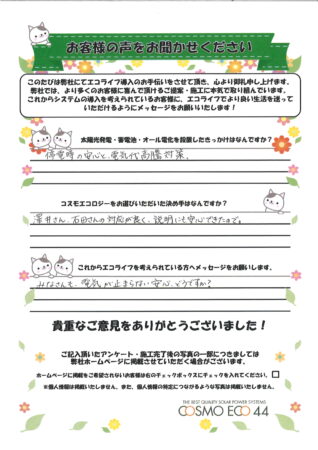 お客様の声をお聞かせください
このたびは弊社にてエコライフ導入のお手伝いをさせて頂き、心より御礼申し上げます。
弊社では、より多くのお客様に喜んで頂けるご提案・施工に本気で取り組んでいます。
これからシステムの導入を考えられているお客様に、エコライフでより良い生活を送って
いただけるようにメッセージをお願いいたします！
太陽光発電・蓄電池・オール電化を設置したきっかけはなんですか？
停電時の安心と電気代高騰対策、
コスモエコロジーをお選びいただいた決め手はなんですか？
澤井さん、石田さんの対応が良く、説明にも安心できたので。
これからエコライフを考えられている方へメッセージをお願いします。
みなさんも、電気が止まらない安心、どうですか?
貴重なご意見をありがとうございました！
ご記入頂いたアンケート・施工完了後の写真の一部につきましては
弊社ホームページに掲載させていただく場合がございます。
ホームページに掲載をご希望されないお客様は右のチェックボックスにチェックを入れてください。
※個人情報は掲載いたしません。また、個人情報の特定につながるような写真は掲載いたしません。
THE BEST QUALITY SOLAR POWER SYSTEMS
COSMO ECO 44